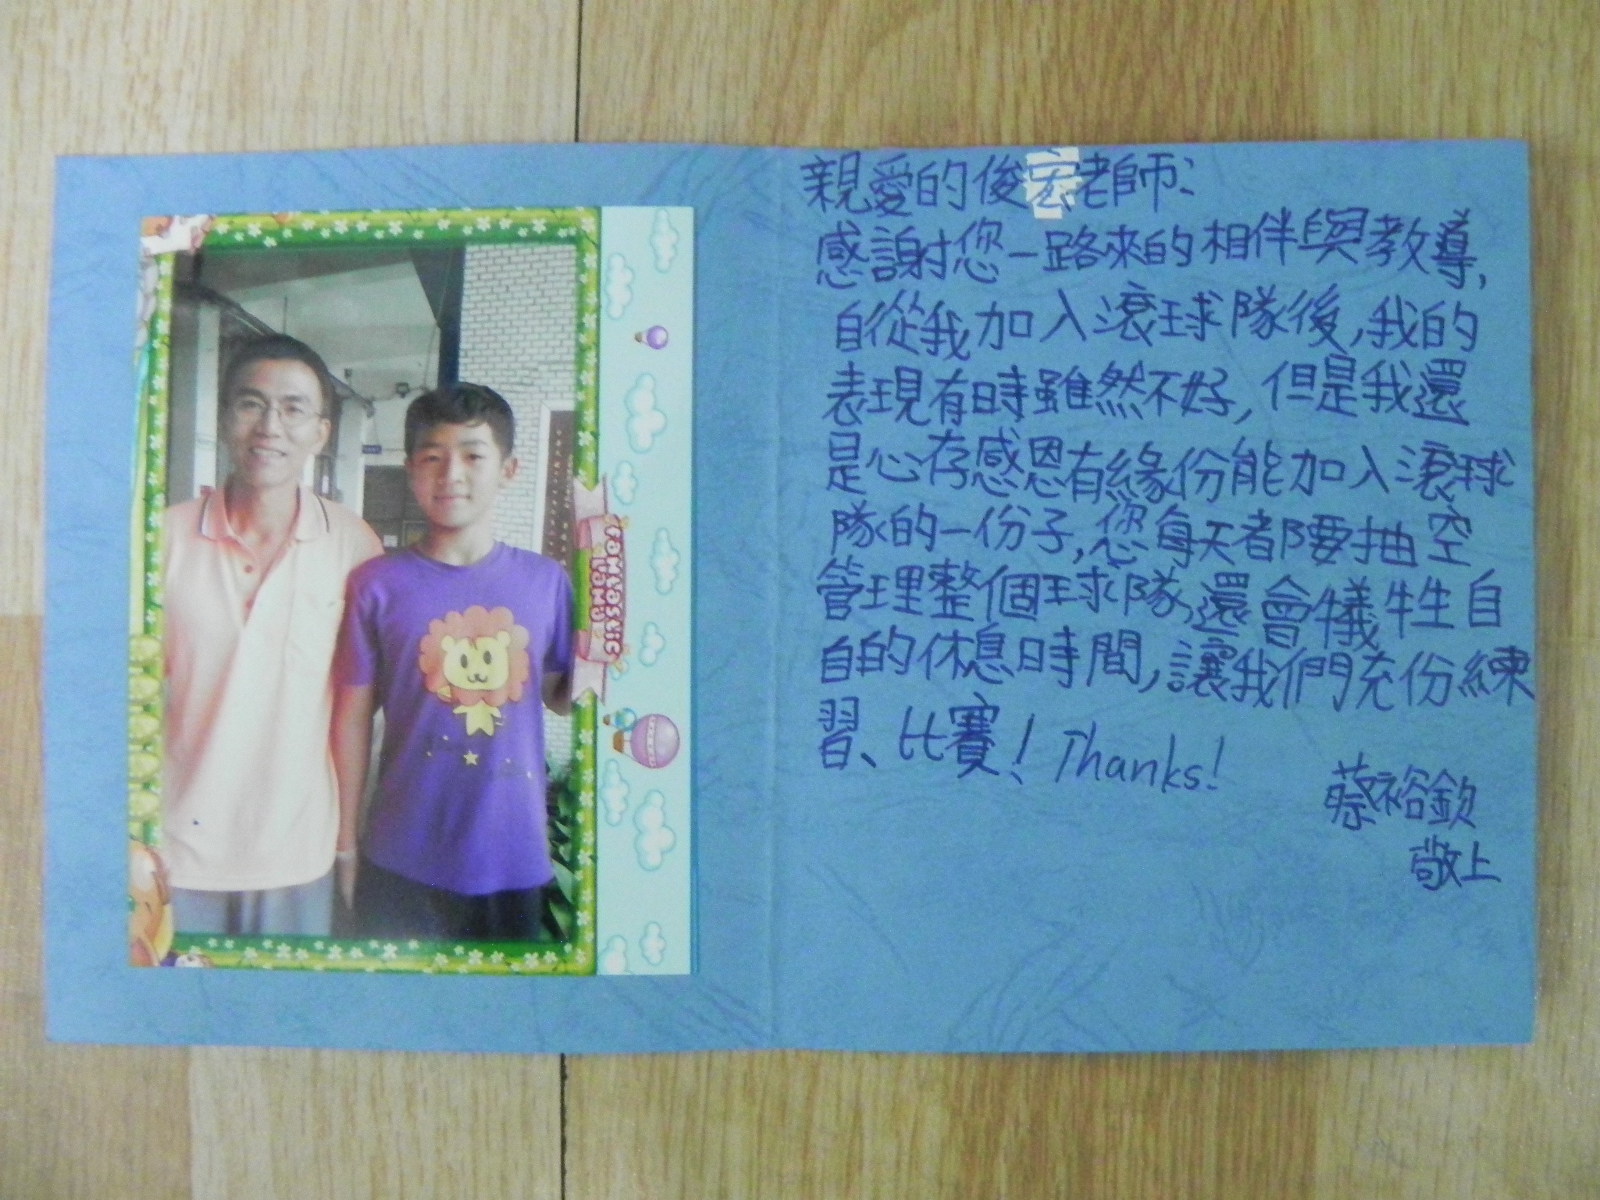 親愛的俊宏老師:
感謝您一路來的相伴與教導,
自從我加入滾球隊後,我的
表現有時雖然不好,但是我還
是心存感恩有緣份能加入滾球
隊的一份子,您每天都要抽空
管理整個球隊,還會犧牲自
自的休息時間,讓我們充份練
習、比賽! Thanks!
蔡裕欽
敬上